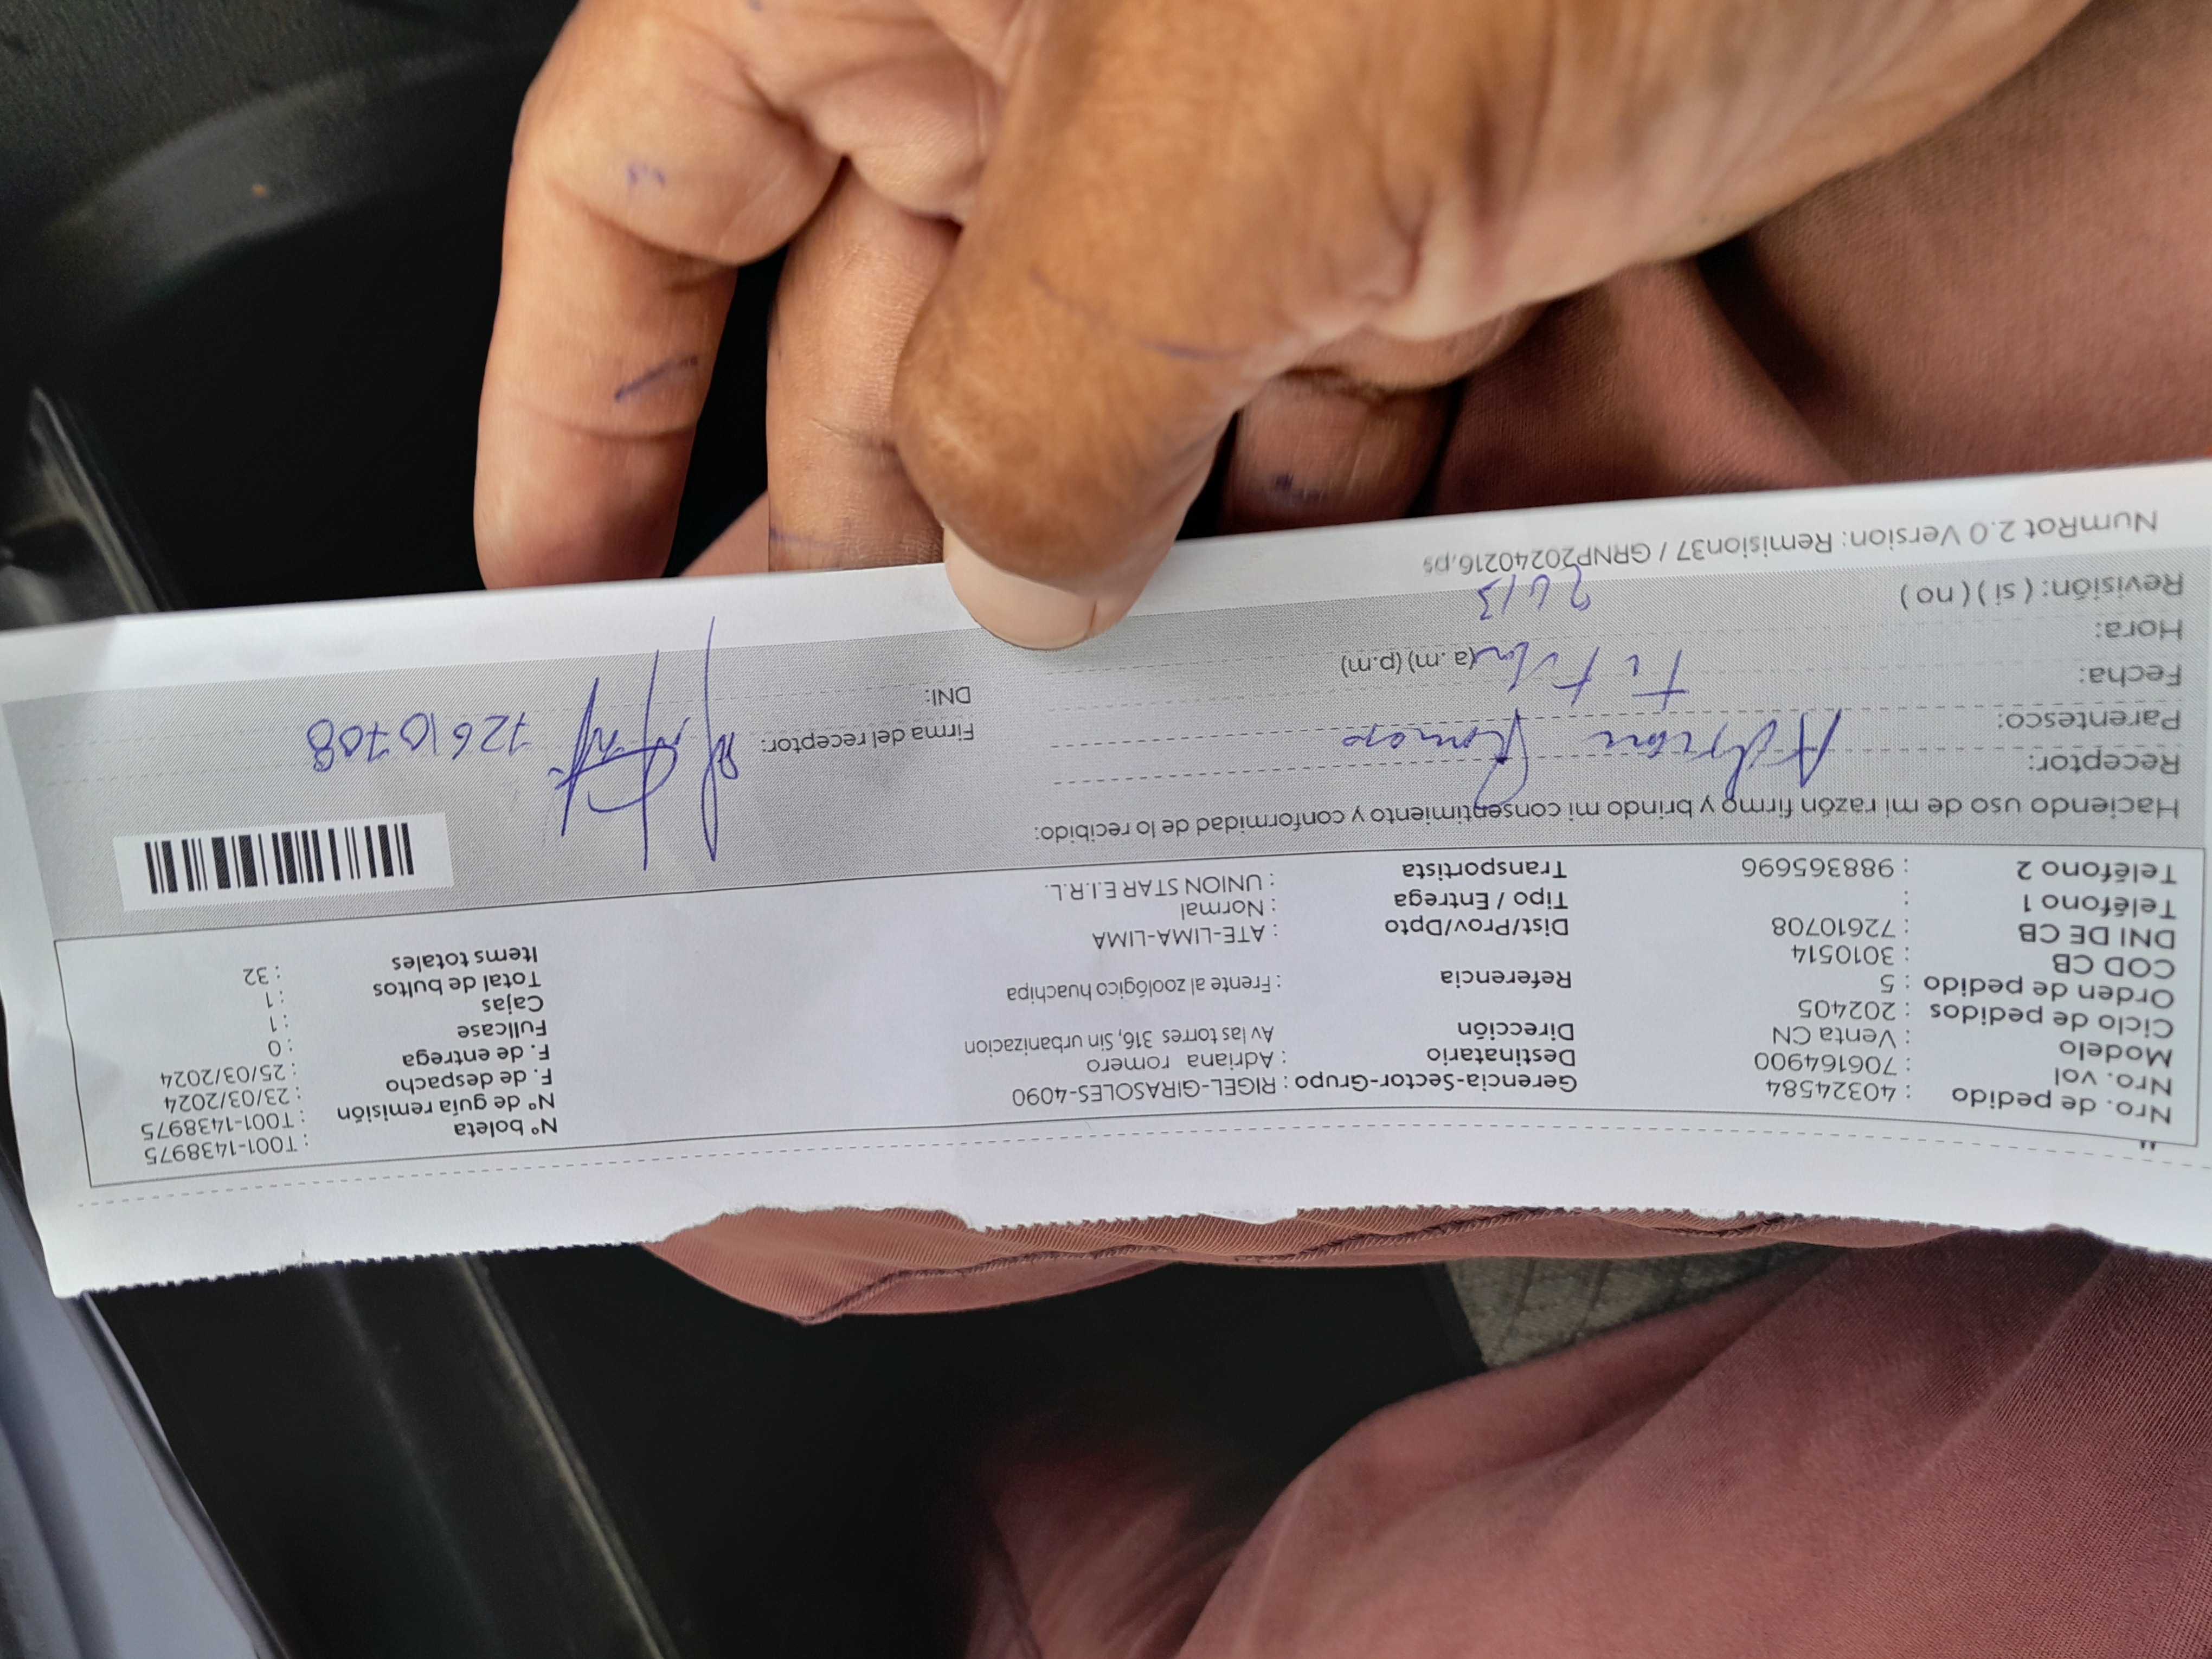 Nro. de pedido : 40324584
Nro. vol : 706164900
Modelo : Venta CN
Ciclo de pedidos : 202405
Orden de pedido : 5
COD CB : 3010514
DNI DE CB : 72610708
Teléfono 1 :
Teléfono 2 : 988365696
Gerencia-Sector-Grupo : RIGEL-GIRASOLES-4090
Destinatario : Adriana romero
Dirección Av las torres 316, Sin urbanizacion
Referencia : Frente al zoológico huachipa
Dist/Prov/Dpto : ATE-LIMA-LIMA
Tipo / Entrega : Normal
Transportista : UNION STAR E.I.R.L.
N° boleta : T001-1438975
N° de guía remisión : T001-1438975
F. de despacho : 23/03/2024
F. de entrega : 25/03/2024
Fullcase : 0
Cajas : 1
Total de bultos : 1
Items totales : 32
Haciendo uso de mi razón firmo y brindo mi consentimiento y conformidad de lo recibido:
Receptor: Adriana Romero
Parentesco: Titular
Fecha:
Hora: (a.m) (p.m)
Revisión: ( si ) ( no )
Firma del receptor:
DNI: 72610708
NumRot 2.0 Version: Remision37 / GRNP20240216.ps